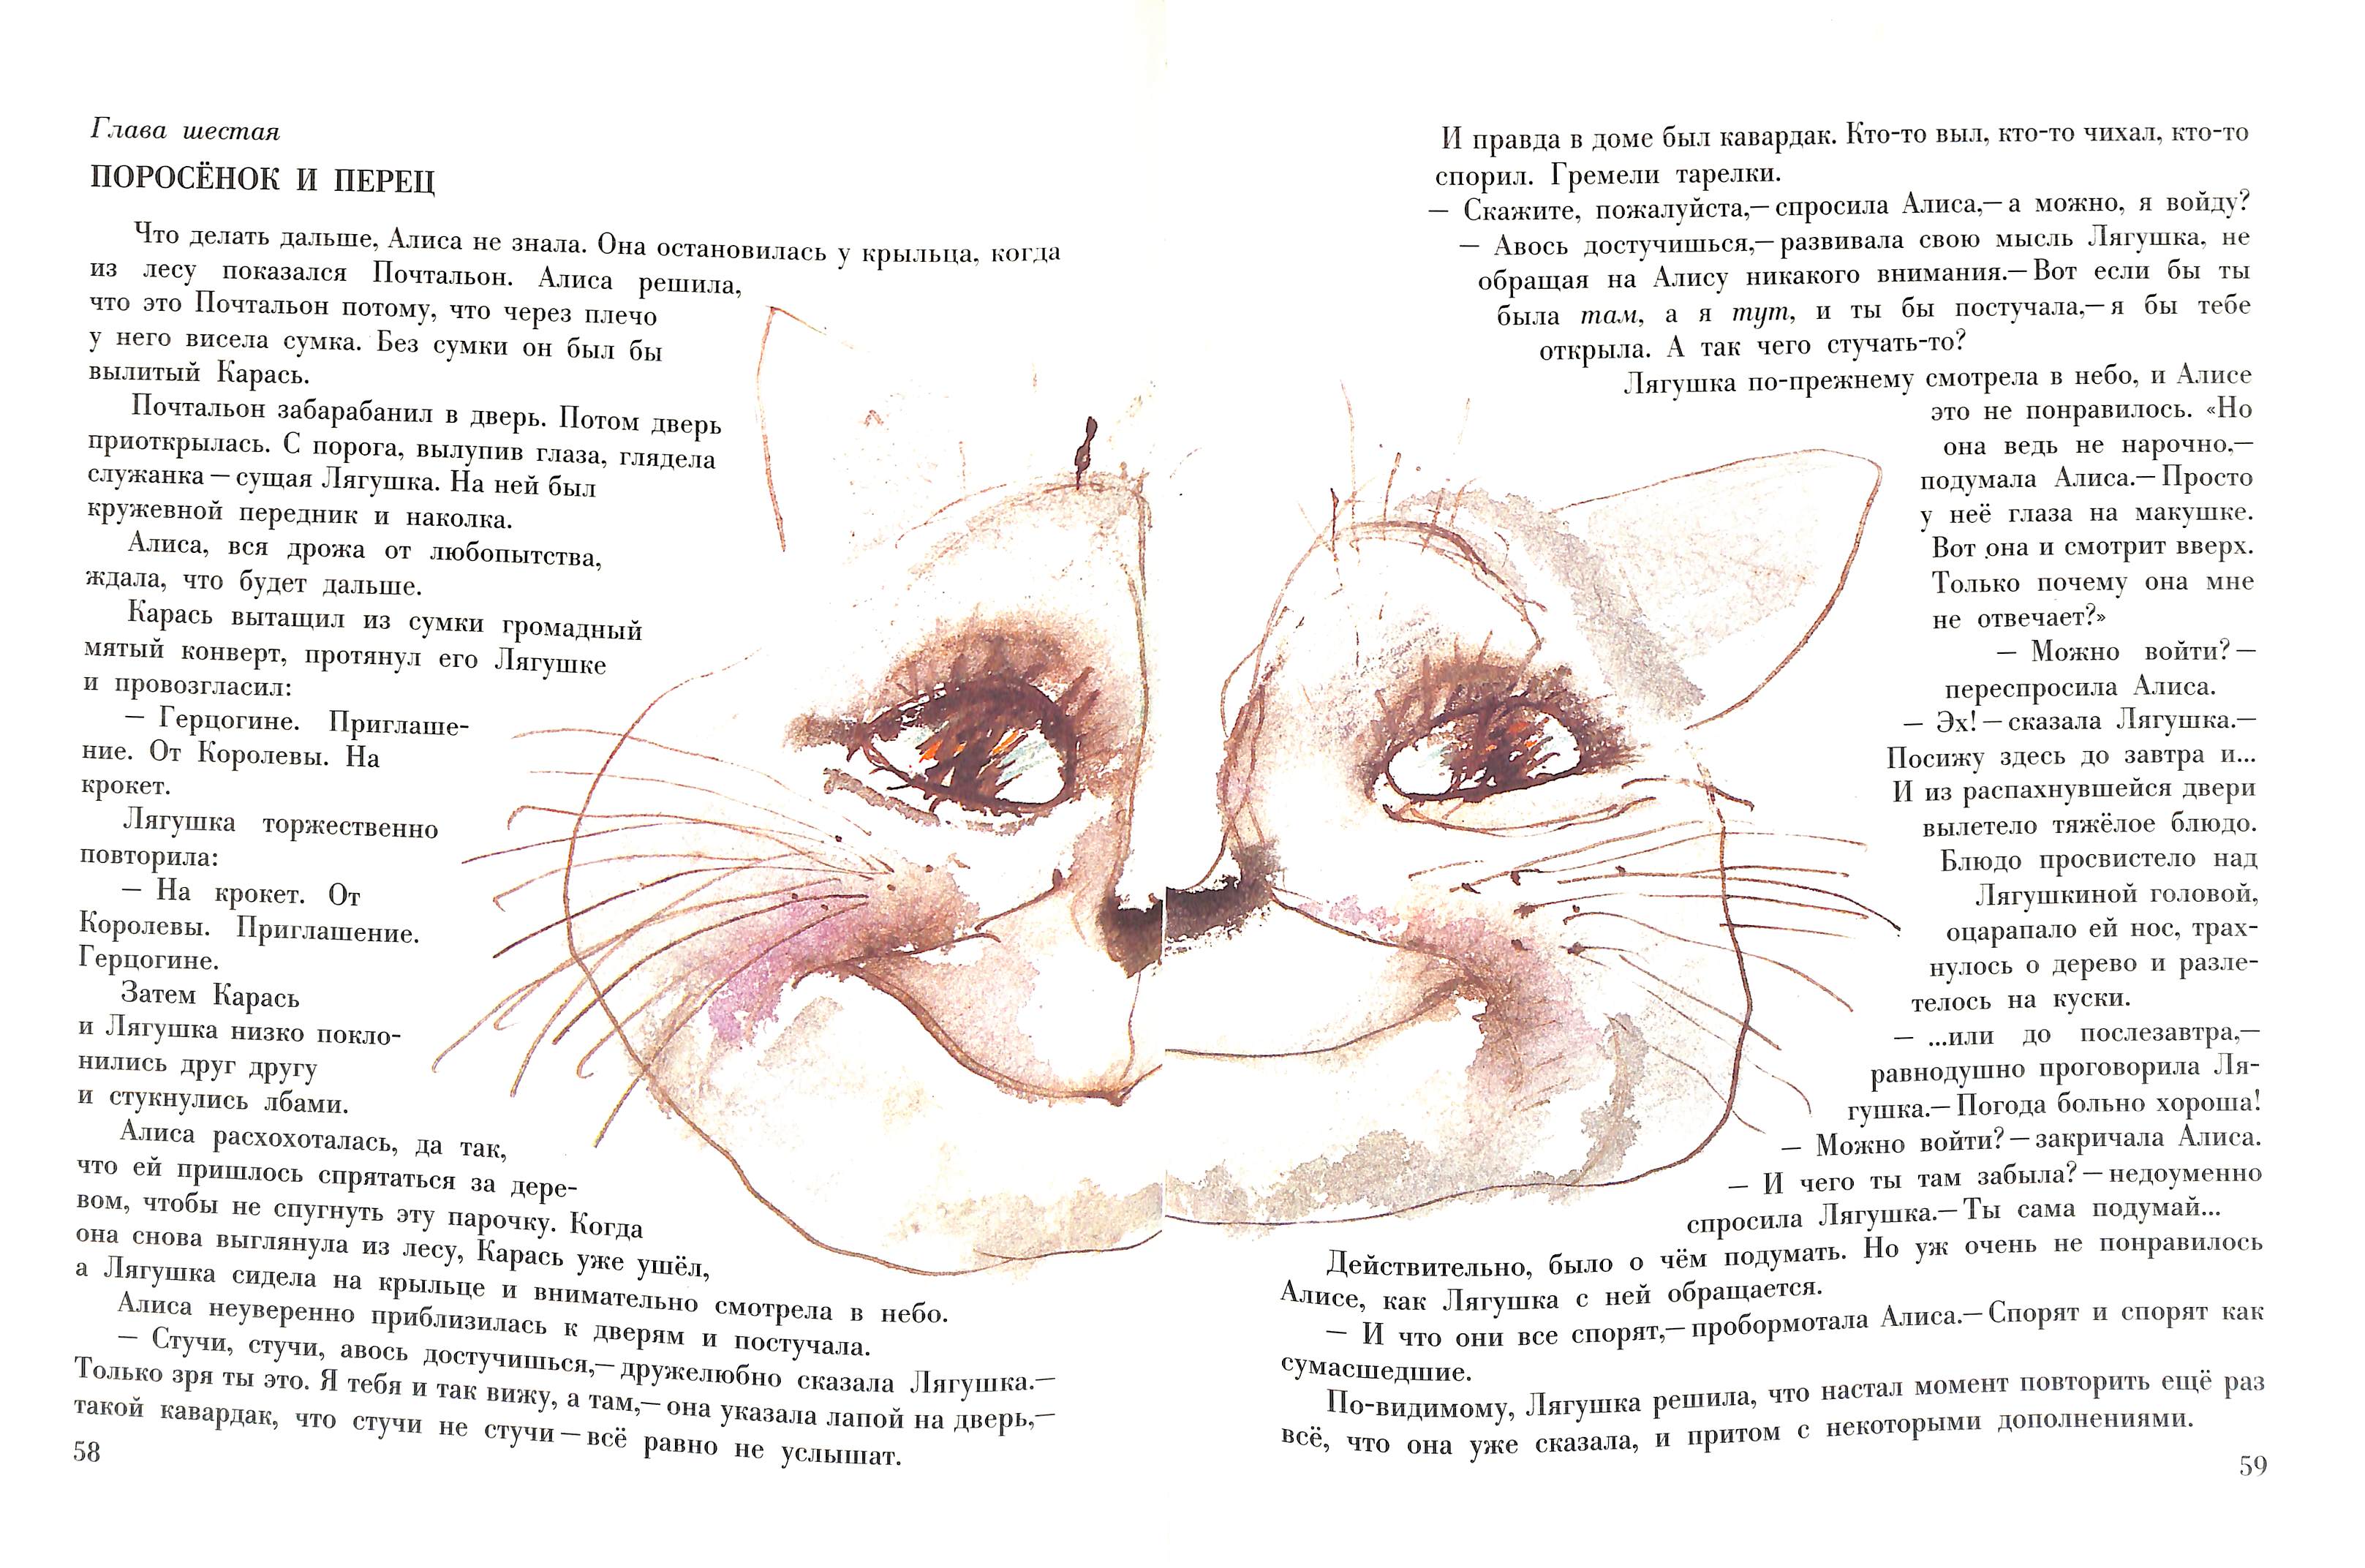 Глава шестая
ПОРОСЁНОК И ПЕРЕЦ
Что делать дальше, Алиса не знала. Она остановилась у крыльца, когда
из лесу показался Почтальон. Алиса решила,
что это Почтальон потому, что через плечо
у него висела сумка. Без сумки он был бы
вылитый Карась.
Почтальон забарабанил в дверь. Потом дверь
приоткрылась. С порога, вылупив глаза, глядела
служанка — сущая Лягушка. На ней был
кружевной передник и наколка.
Алиса, вся дрожа от любопытства,
ждала, что будет дальше.
Карась вытащил из сумки громадный
мятый конверт, протянул его Лягушке
и провозгласил:
— Герцогине. Приглаше-
ние. От Королевы. На
крокет.
Лягушка торжественно
повторила:
— На крокет. От
Королевы. Приглашение.
Герцогине.
Затем Карась
и Лягушка низко покло-
нились друг другу
и стукнулись лбами.
Алиса расхохоталась, да так,
что ей пришлось спрятаться за дере-
вом, чтобы не спугнуть эту парочку. Когда
она снова выглянула из лесу, Карась уже ушёл,
а Лягушка сидела на крыльце и внимательно смотрела в небо.
Алиса неуверенно приблизилась к дверям и постучала.
— Стучи, стучи, авось достучишься,— дружелюбно сказала Лягушка.—
Только зря ты это. Я тебя и так вижу, а там,— она указала лапой на дверь,—
такой кавардак, что стучи не стучи — всё равно не услышат.
58
И правда в доме был кавардак. Кто-то выл, кто-то чихал, кто-то
спорил. Гремели тарелки.
— Скажите, пожалуйста,— спросила Алиса,— а можно, я войду?
— Авось достучишься,— развивала свою мысль Лягушка, не
обращая на Алису никакого внимания.— Вот если бы ты
была там, а я тут, и ты бы постучала,— я бы тебе
открыла. А так чего стучать-то?
Лягушка по-прежнему смотрела в небо, и Алисе
это не понравилось. «Но
она ведь не нарочно,—
подумала Алиса.— Просто
у неё глаза на макушке.
Вот она и смотрит вверх.
Только почему она мне
не отвечает?»
— Можно войти? —
переспросила Алиса.
— Эх! — сказала Лягушка.—
Посижу здесь до завтра и...
И из распахнувшейся двери
вылетело тяжёлое блюдо.
Блюдо просвистело над
Лягушкиной головой,
оцарапало ей нос, трах-
нулось о дерево и разле-
телось на куски.
— ...или до послезавтра,—
равнодушно проговорила Ля-
гушка.— Погода больно хороша!
— Можно войти? — закричала Алиса.
— И чего ты там забыла? — недоуменно
спросила Лягушка.— Ты сама подумай...
Действительно, было о чём подумать. Но уж очень не понравилось
Алисе, как Лягушка с ней обращается.
— И что они все спорят,— пробормотала Алиса.— Спорят и спорят как
сумасшедшие.
По-видимому, Лягушка решила, что настал момент повторить ещё раз
всё, что она уже сказала, и притом с некоторыми дополнениями.
59